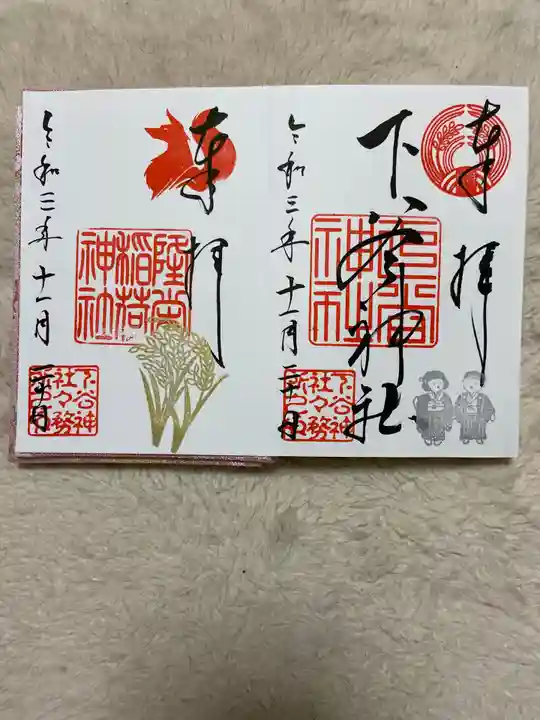 奉拝
下谷神社
令和三年十一月二十日
下谷神
社々務
奉拝
隆栄
稲荷
神社
令和三年十一月二十日
下谷神
社々務